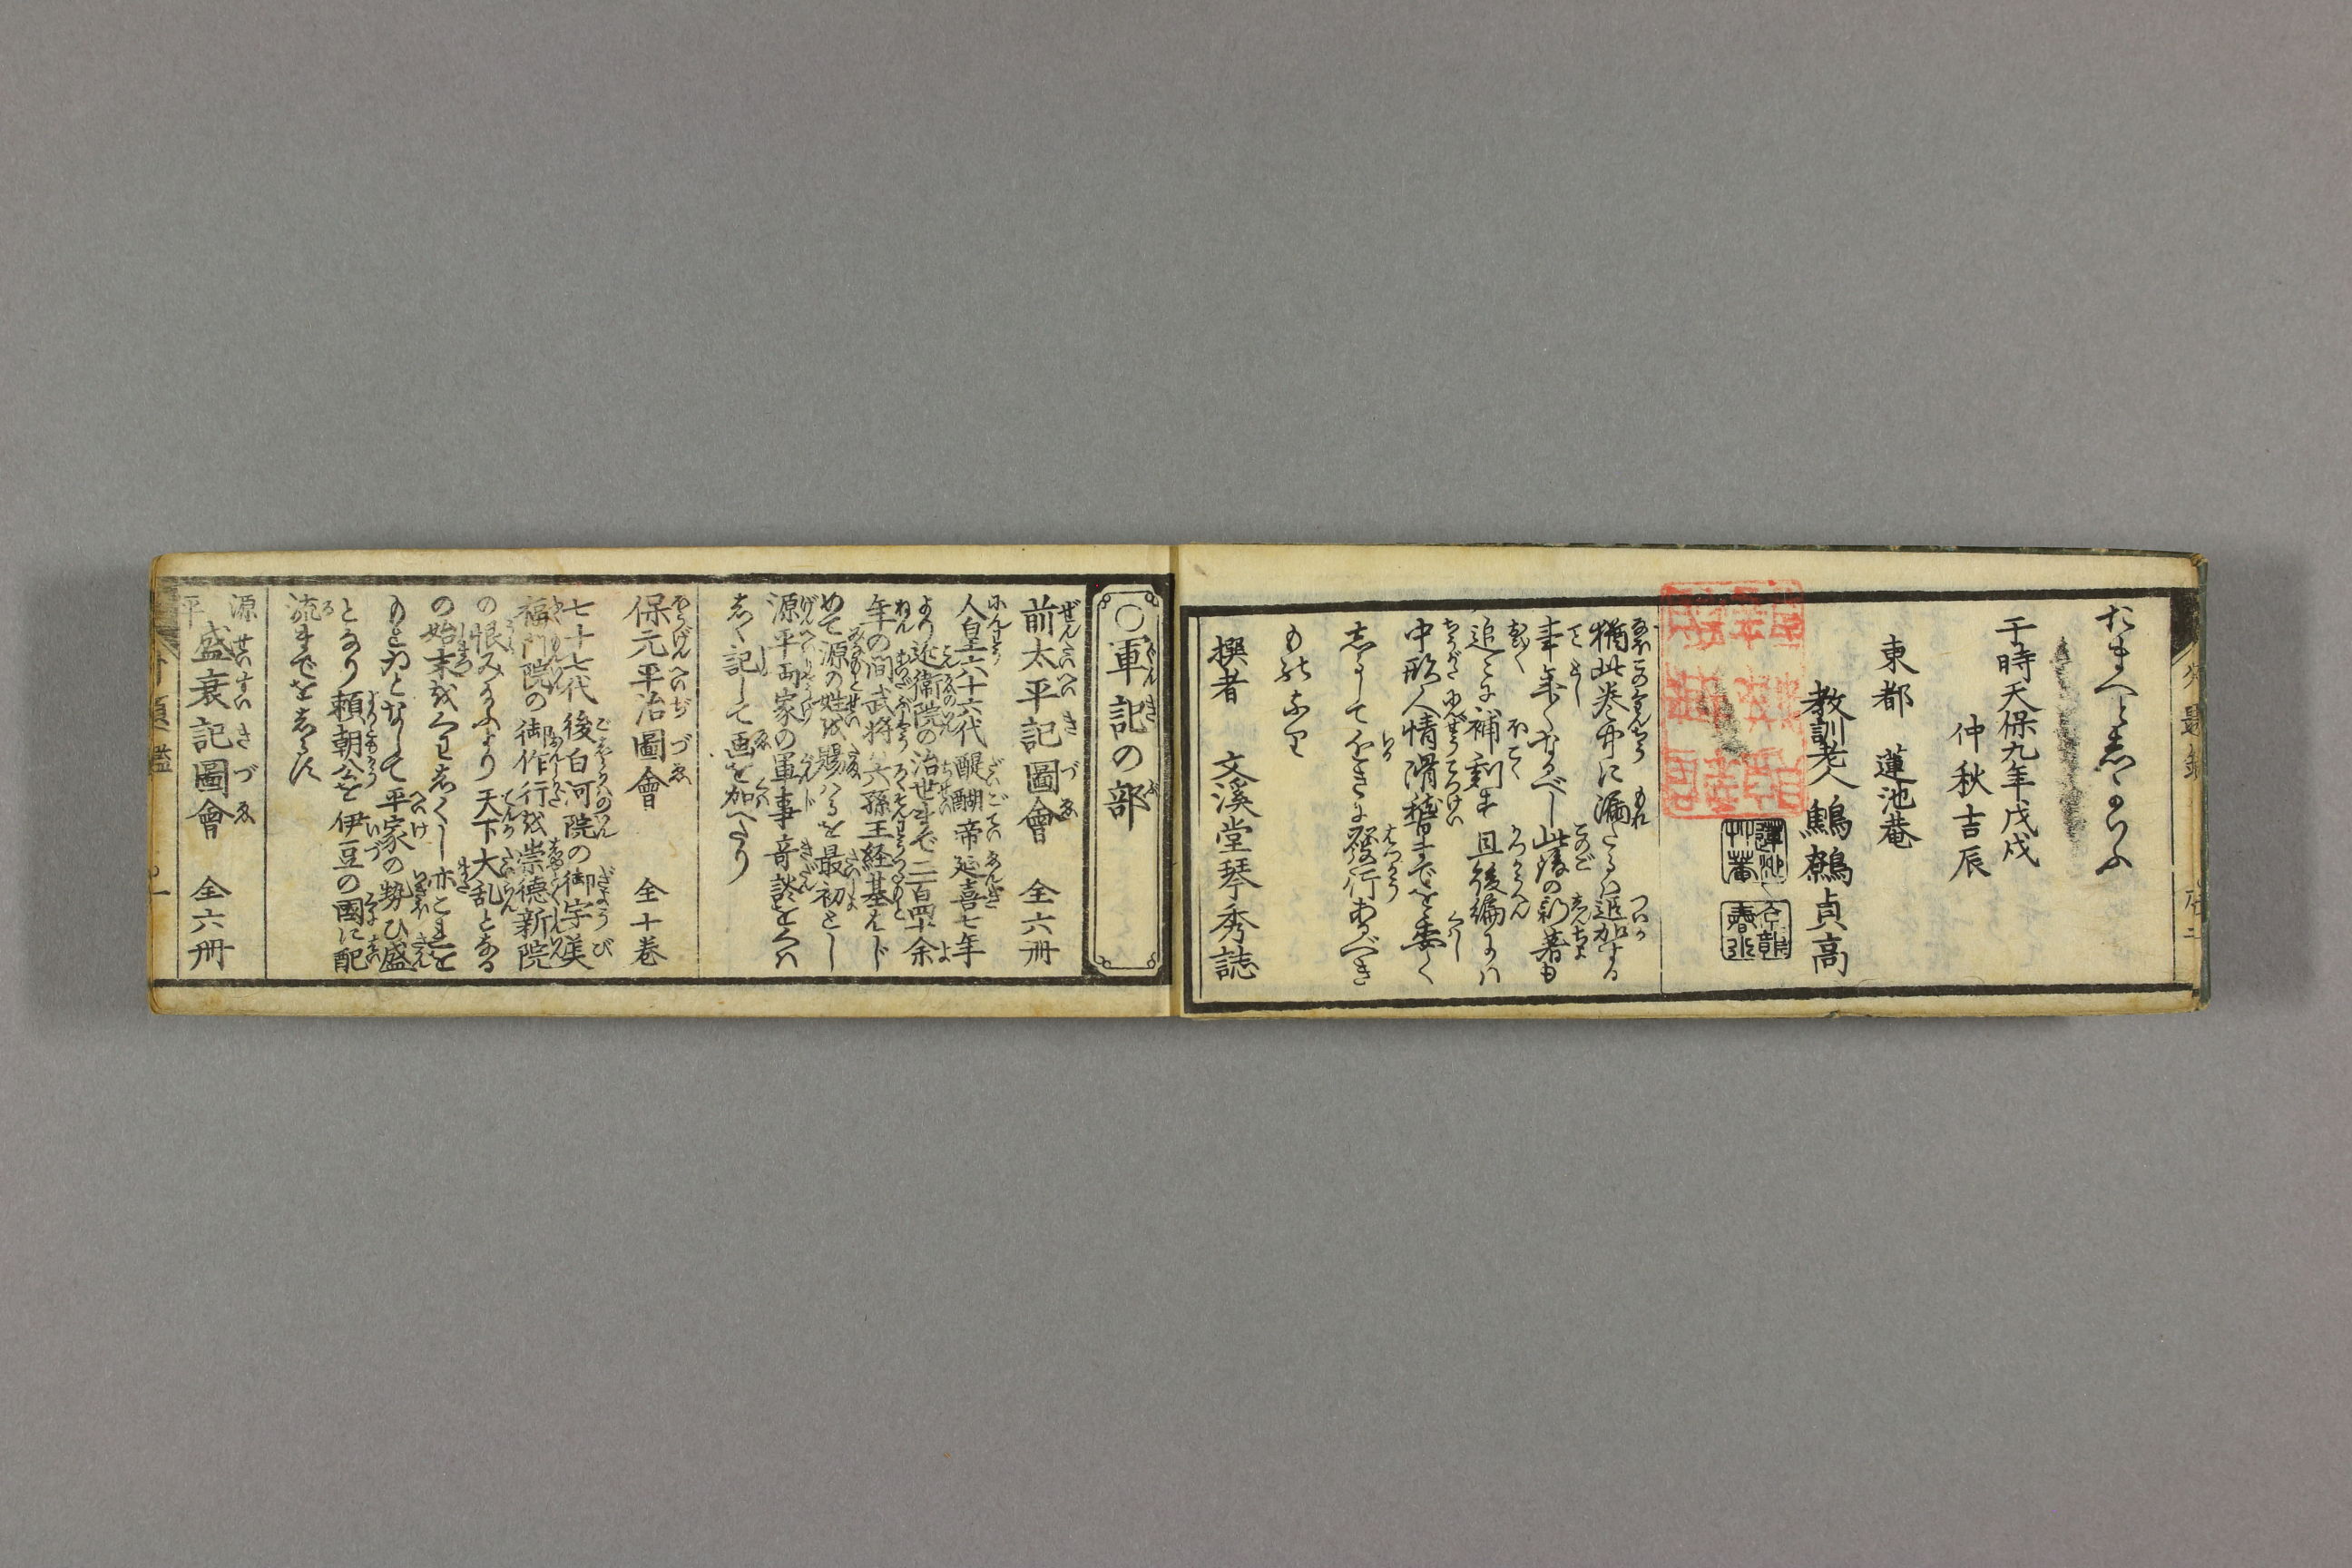 たまへと志かいふ
于時天保九年戊戌
仲秋吉辰
東都 蓮池菴
教訓老人鷦鷯貞高
猶此巻中に漏たるハ追加する
年々あるべし此後の新著も
追々に補刻す且後編にハ
中形人情滑稽本までを委く
志るして近きに發行あるべき
ものなり
撰者 文溪堂琴秀誌
○軍記の部
前太平記圖會 全六冊
人皇六十六代醍醐帝延喜七年
より近衛院の治世まで二百四十余
年の間武将六孫王経基はじ
めて源の姓を賜はるを最初とし
源平両家の軍事奇談をくハ
しく記して画を加へたり
保元平治圖會 全十巻
七十七代後白河院の御宇美
福門院の御作行を崇德新院
の恨み給ふより天下大乱となる
の始末をくわしくし亦これを
もとゐとなして平家の勢ひ盛
となり頼朝公を伊豆の國に配
流までをしるす
源平盛衰記圖會 全六冊